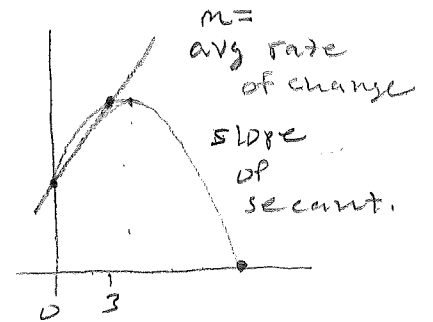 m =
avg rate
of change
slope
of
secant.
0 3